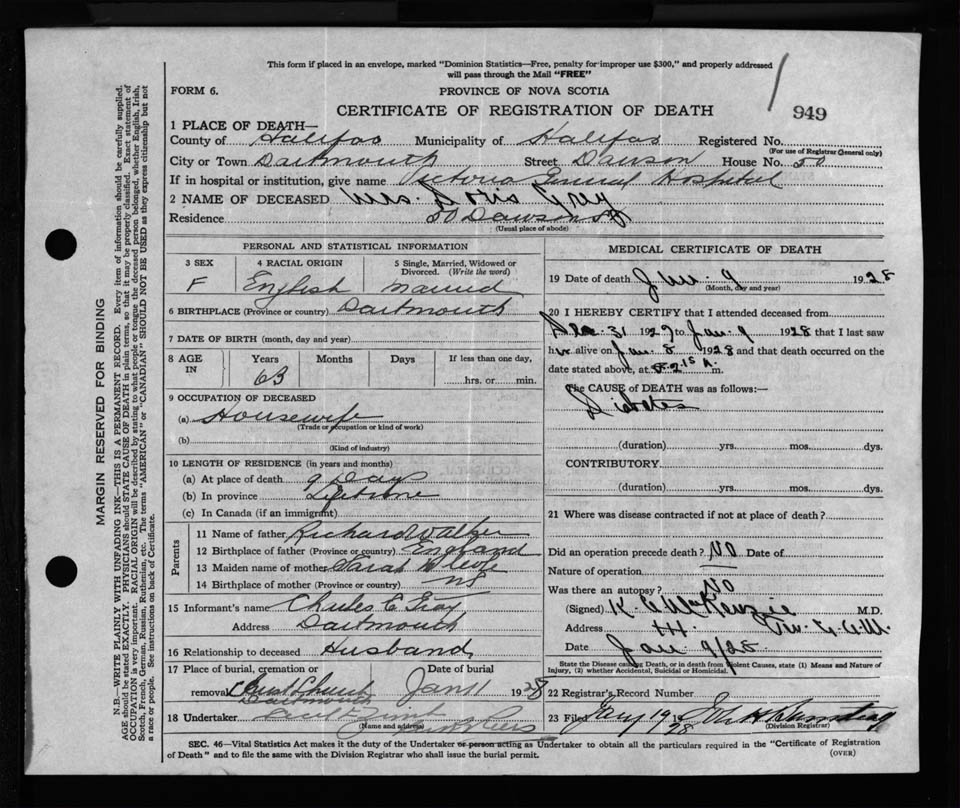 This form if placed in an envelope, marked "Dominion Statistics—Free, penalty for improper use $300," and properly addressed
will pass through the Mail "FREE"
FORM 6.
PROVINCE OF NOVA SCOTIA
949
CERTIFICATE OF REGISTRATION OF DEATH
1 PLACE OF DEATH—
County of Halifax Municipality of Halifax Registered No.
(For use of Registrar General only)
City or Town Dartmouth Street Dawson House No. 50
If in hospital or institution, give name Victoria General Hospital
2 NAME OF DECEASED Mrs. Doris Gray
Residence 50 Dawson St
(Usual place of abode)
PERSONAL AND STATISTICAL INFORMATION
3 SEX 4 RACIAL ORIGIN 5 Single, Married, Widowed or Divorced. (Write the word)
F English Married
6 BIRTHPLACE (Province or country) Dartmouth
7 DATE OF BIRTH (month, day and year)
8 AGE IN Years Months Days If less than one day,
63 hrs. or min.
9 OCCUPATION OF DECEASED
(a) Housewife
(Trade or occupation or kind of work)
(b)
(Kind of industry)
10 LENGTH OF RESIDENCE (in years and months)
(a) At place of death 9 Days
(b) In province Lifetime
(c) In Canada (if an immigrant)
Parents
11 Name of father Richard Walker
12 Birthplace of father (Province or country) England
13 Maiden name of mother Sarah
14 Birthplace of mother (Province or country) NS
15 Informant's name Charles E Gray
Address Dartmouth
16 Relationship to deceased Husband
17 Place of burial, cremation or removal Date of burial
Christ Church Dartmouth Jan 11 1928
18 Undertaker
(Name and address)
MEDICAL CERTIFICATE OF DEATH
19 Date of death Jan. 9 1928
(Month, day and year)
20 I HEREBY CERTIFY that I attended deceased from
Dec 31 1927 to Jan. 9 1928 that I last saw
her alive on Jan. 8 1928 and that death occurred on the
date stated above, at m.
The CAUSE OF DEATH was as follows:—
Diabetes
(duration) yrs. mos. dys.
CONTRIBUTORY
(duration) yrs. mos. dys.
21 Where was disease contracted if not at place of death?
Did an operation precede death? No Date of
Nature of operation
Was there an autopsy? No
(Signed) K. A. McKenzie M.D.
Address
Date Jan 9/28
State the Disease causing Death, or in death from Violent Causes, state (1) Means and Nature of Injury, (2) whether Accidental, Suicidal or Homicidal.
22 Registrar's Record Number
23 Filed 19 28
(Division Registrar)
SEC. 46—Vital Statistics Act makes it the duty of the Undertaker or person acting as Undertaker to obtain all the particulars required in the "Certificate of Registration
of Death" and to file the same with the Division Registrar who shall issue the burial permit.
(OVER)
MARGIN RESERVED FOR BINDING
N.B.—WRITE PLAINLY WITH UNFADING INK—THIS IS A PERMANENT RECORD. Every item of information should be carefully supplied.
AGE should be stated EXACTLY. PHYSICIANS should STATE CAUSE OF DEATH in plain terms, so that it may be properly classified. Exact statement of
OCCUPATION is very important. RACIAL ORIGIN will be described by stating to what people or tongue the deceased person belonged, whether English, Irish,
Scotch, French, German, Russian, Ruthenian, etc. The terms "AMERICAN" or "CANADIAN" SHOULD NOT BE USED as they express citizenship but not
a race or people. See instructions on back of Certificate.